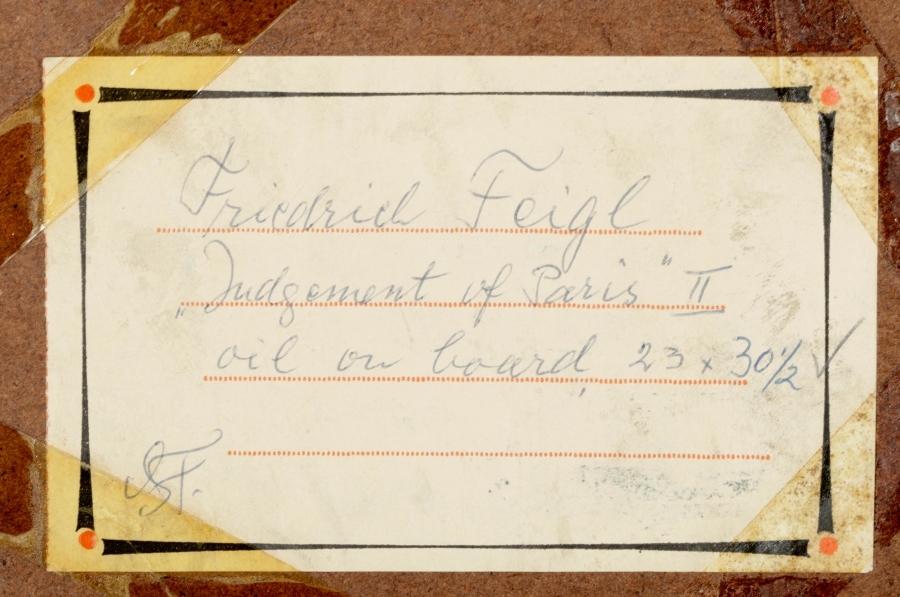 Friedrich Feigl
„Judgement of Paris" II
oil on board, 23 x 30½ ✓